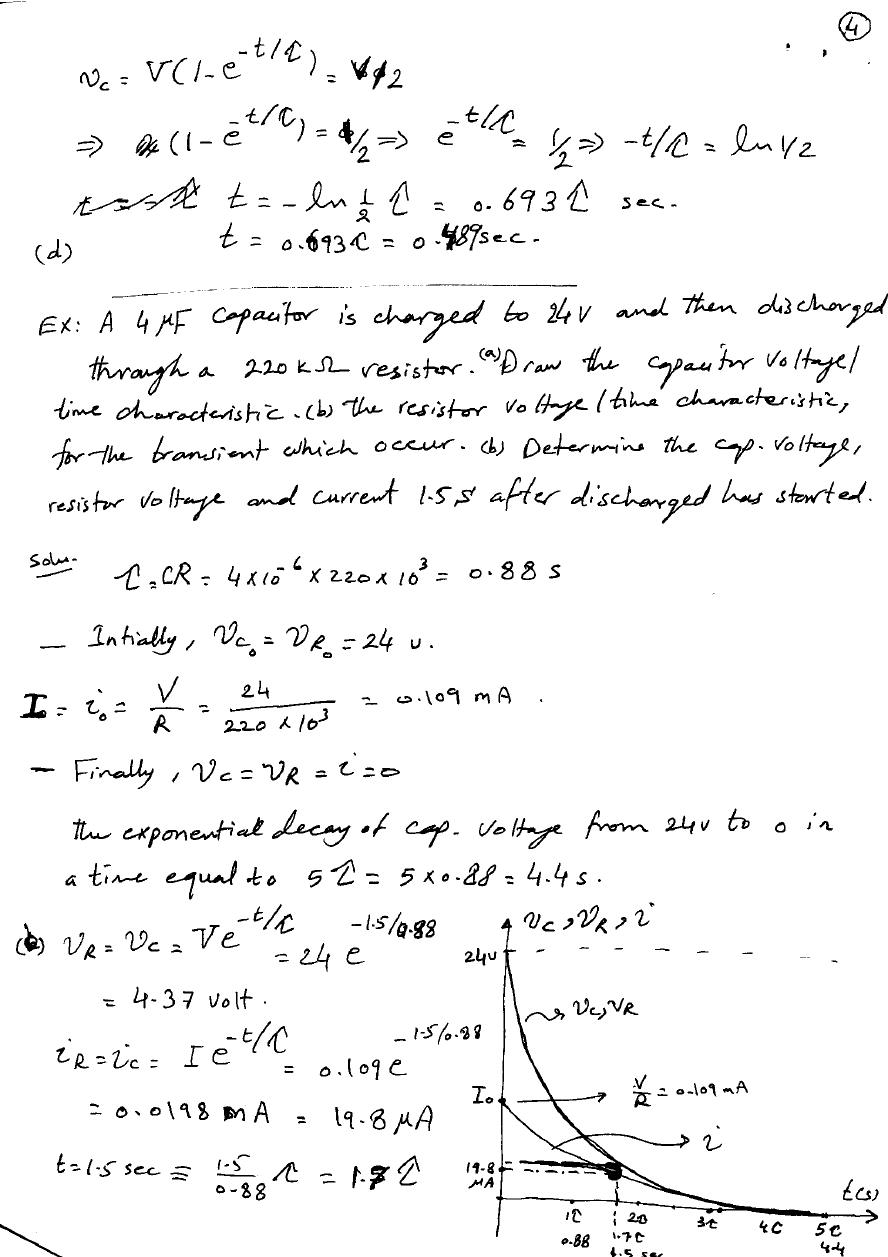 4
v_c = V(1-e^{-t/τ}) = V/2
⇒ (1-e^{-t/τ}) = 1/2 ⇒ e^{-t/τ} = 1/2 ⇒ -t/τ = ln 1/2
t = - ln 1/2 τ = 0.693 τ sec.
(d) t = 0.693 τ = 0.489 sec.
Ex: A 4 μF capacitor is charged to 24V and then discharged
through a 220 kΩ resistor. (a) Draw the capacitor voltage/
time characteristic. (b) The resistor voltage/time characteristic,
for the transient which occur. (b) Determine the cap. voltage,
resistor voltage and current 1.5 s after discharged has started.
Solu.
τ = CR = 4x10^{-6} x 220 x 10^3 = 0.88 s
— Intially, v_{C_0} = v_{R_0} = 24 v.
I = i_0 = V/R = 24/(220 x 10^3) = 0.109 mA.
— Finally, v_c = v_R = i = 0
The exponential decay of cap. voltage from 24v to 0 in
a time equal to 5τ = 5 x 0.88 = 4.4 s.
(b) v_R = v_c = Ve^{-t/τ} = 24 e^{-1.5/0.88}
= 4.37 volt.
i_R = i_c = I e^{-t/τ} = 0.109 e^{-1.5/0.88}
= 0.0198 mA = 19.8 μA
t = 1.5 sec ≡ 1.5/0.88 τ = 1.7 τ
v_c, v_R, i
24v
v_c, v_R
I_0
V/R = 0.109 mA
i
19.8
μA
t(s)
1τ 2τ 3τ 4τ 5τ
0.88 1.7τ 4.4
1.5 sec